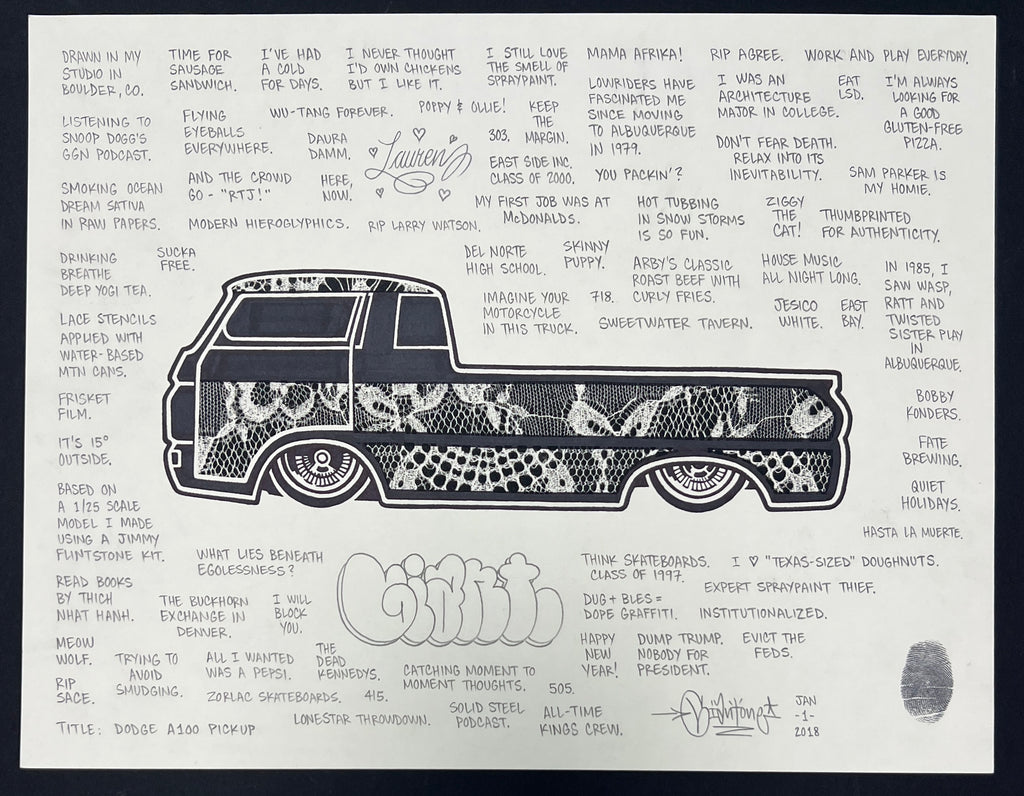 DRAWN IN MY
STUDIO IN
BOULDER, CO.
TIME FOR
SAUSAGE
SANDWICH.
I'VE HAD
A COLD
FOR DAYS.
I NEVER THOUGHT
I'D OWN CHICKENS
BUT I LIKE IT.
I STILL LOVE
THE SMELL OF
SPRAYPAINT.
MAMA AFRIKA!
RIP AGREE.
WORK AND PLAY EVERYDAY.
LOWRIDERS HAVE
FASCINATED ME
SINCE MOVING
TO ALBUQUERQUE
IN 1979.
I WAS AN
ARCHITECTURE
MAJOR IN COLLEGE.
EAT
LSD.
I'M ALWAYS
LOOKING FOR
A GOOD
GLUTEN-FREE
PIZZA.
LISTENING TO
SNOOP DOGG'S
GGN PODCAST.
FLYING
EYEBALLS
EVERYWHERE.
WU-TANG FOREVER.
POPPY & OLLIE!
KEEP
THE
MARGIN.
DAURA
DAMM.
Lauren
303.
EAST SIDE INC.
CLASS OF 2000.
DON'T FEAR DEATH.
RELAX INTO ITS
INEVITABILITY.
YOU PACKIN'?
SAM PARKER IS
MY HOMIE.
SMOKING OCEAN
DREAM SATIVA
IN RAW PAPERS.
AND THE CROWD
GO - "RTJ!"
HERE,
NOW.
MODERN HIEROGLYPHICS.
RIP LARRY WATSON.
MY FIRST JOB WAS AT
McDONALDS.
HOT TUBBING
IN SNOW STORMS
IS SO FUN.
ZIGGY
THE
CAT!
THUMBPRINTED
FOR AUTHENTICITY.
DRINKING
BREATHE
DEEP YOGI TEA.
SUCKA
FREE.
DEL NORTE
HIGH SCHOOL.
SKINNY
PUPPY.
ARBY'S CLASSIC
ROAST BEEF WITH
CURLY FRIES.
HOUSE MUSIC
ALL NIGHT LONG.
IN 1985, I
SAW WASP,
RATT AND
TWISTED
SISTER PLAY
IN
ALBUQUERQUE.
IMAGINE YOUR
MOTORCYCLE
IN THIS TRUCK.
718.
SWEETWATER TAVERN.
JESICO
WHITE.
EAST
BAY.
LACE STENCILS
APPLIED WITH
WATER-BASED
MTN CANS.
FRISKET
FILM.
IT'S 15°
OUTSIDE.
BOBBY
KONDERS.
FATE
BREWING.
QUIET
HOLIDAYS.
HASTA LA MUERTE.
BASED ON
A 1/25 SCALE
MODEL I MADE
USING A JIMMY
FLINTSTONE KIT.
WHAT LIES BENEATH
EGOLESSNESS?
Giant
THINK SKATEBOARDS.
CLASS OF 1997.
I ♡ "TEXAS-SIZED" DOUGHNUTS.
EXPERT SPRAYPAINT THIEF.
READ BOOKS
BY THICH
NHAT HANH.
THE BUCKHORN
EXCHANGE IN
DENVER.
I WILL
BLOCK
YOU.
DUG + BLES =
DOPE GRAFFITI.
INSTITUTIONALIZED.
MEOW
WOLF.
TRYING TO
AVOID
SMUDGING.
ALL I WANTED
WAS A PEPSI.
THE
DEAD
KENNEDYS.
CATCHING MOMENT TO
MOMENT THOUGHTS.
HAPPY
NEW
YEAR!
DUMP TRUMP.
NOBODY FOR
PRESIDENT.
EVICT THE
FEDS.
RIP
SACE.
ZORLAC SKATEBOARDS.
415.
505.
LONESTAR THROWDOWN.
SOLID STEEL
PODCAST.
ALL-TIME
KINGS CREW.
JAN
-1-
2018
TITLE: DODGE A100 PICKUP